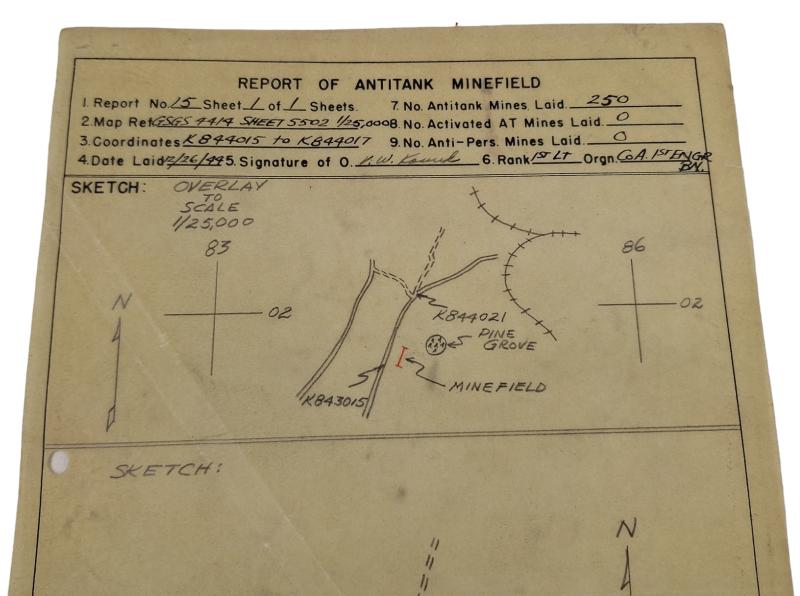 REPORT OF ANTITANK MINEFIELD
1. Report No. 15 Sheet 1 of 1 Sheets. 7. No. Antitank Mines Laid. 250
2. Map Ref. GSGS 4414 SHEET 5502 1/25,000 8. No. Activated AT Mines Laid. 0
3. Coordinates K844015 to K844017 9. No. Anti-Pers. Mines Laid. 0
4. Date Laid 12/26/44 5. Signature of O. 6. Rank 1ST LT Orgn. Co A. 1ST ENGR BN.
SKETCH: OVERLAY
TO
SCALE
1/25,000
83
86
02
02
N
K844021
PINE
GROVE
MINEFIELD
K843015
SKETCH:
N